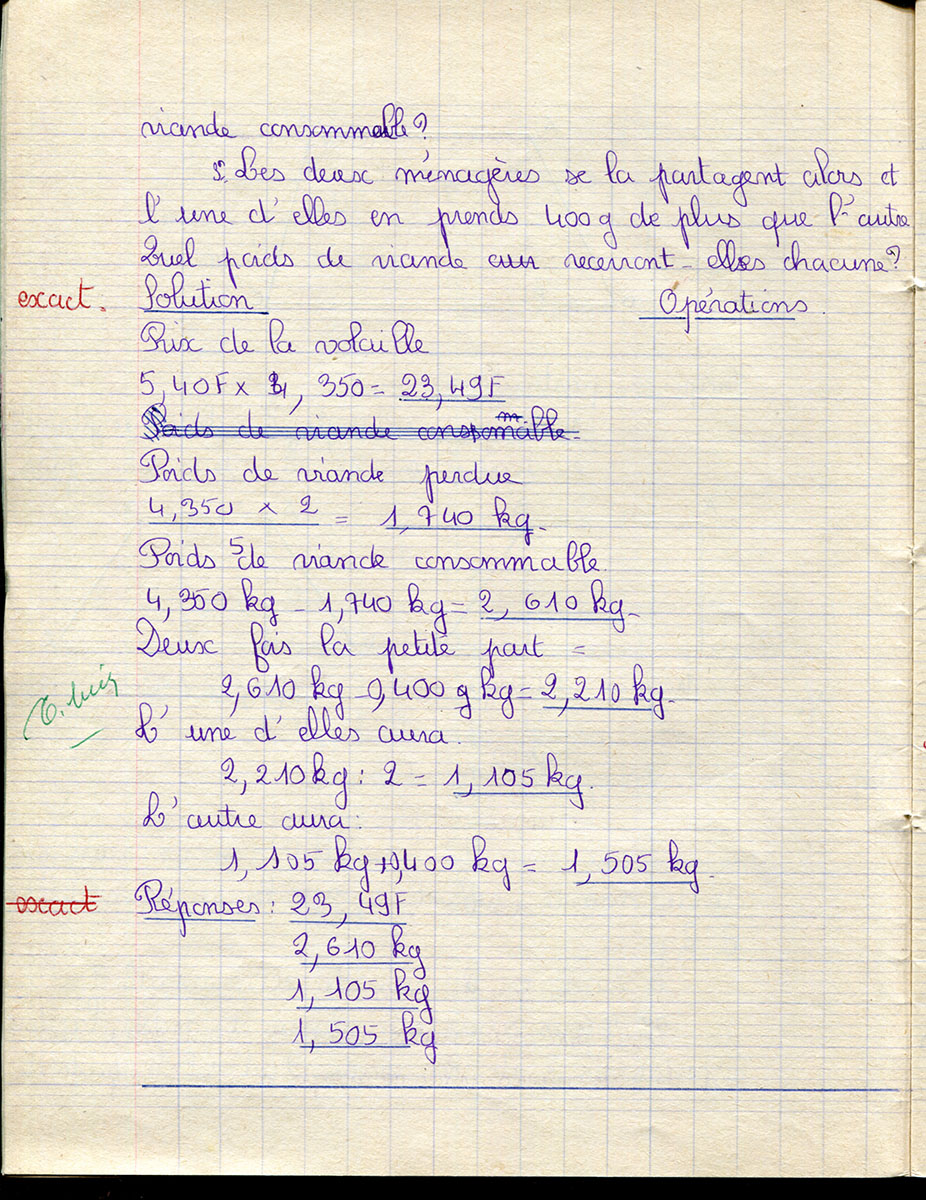 viande consommable?
3: Les deux ménagères se la partagent alors et
l'une d'elles en prends 400 g de plus que l'autre
Quel poids de viande recevront-elles chacune?
exact. Solution Opérations.
Prix de la volaille
5,40F x 4,350 = 23,49F
Poids de viande consommable.
Poids de viande perdue
4,350 x 2 = 1,740 kg.
5
Poids de viande consommable.
4,350 kg - 1,740 kg = 2,610 kg.
Deux fois la petite part =
2,610 kg - 0,400 g kg = 2,210 kg.
L'une d'elles aura.
2,210 kg : 2 = 1,105 kg.
L'autre aura:
1,105 kg + 0,400 kg = 1,505 kg.
exact Réponses: 23,49F
2,610 kg
1,105 kg
1,505 kg